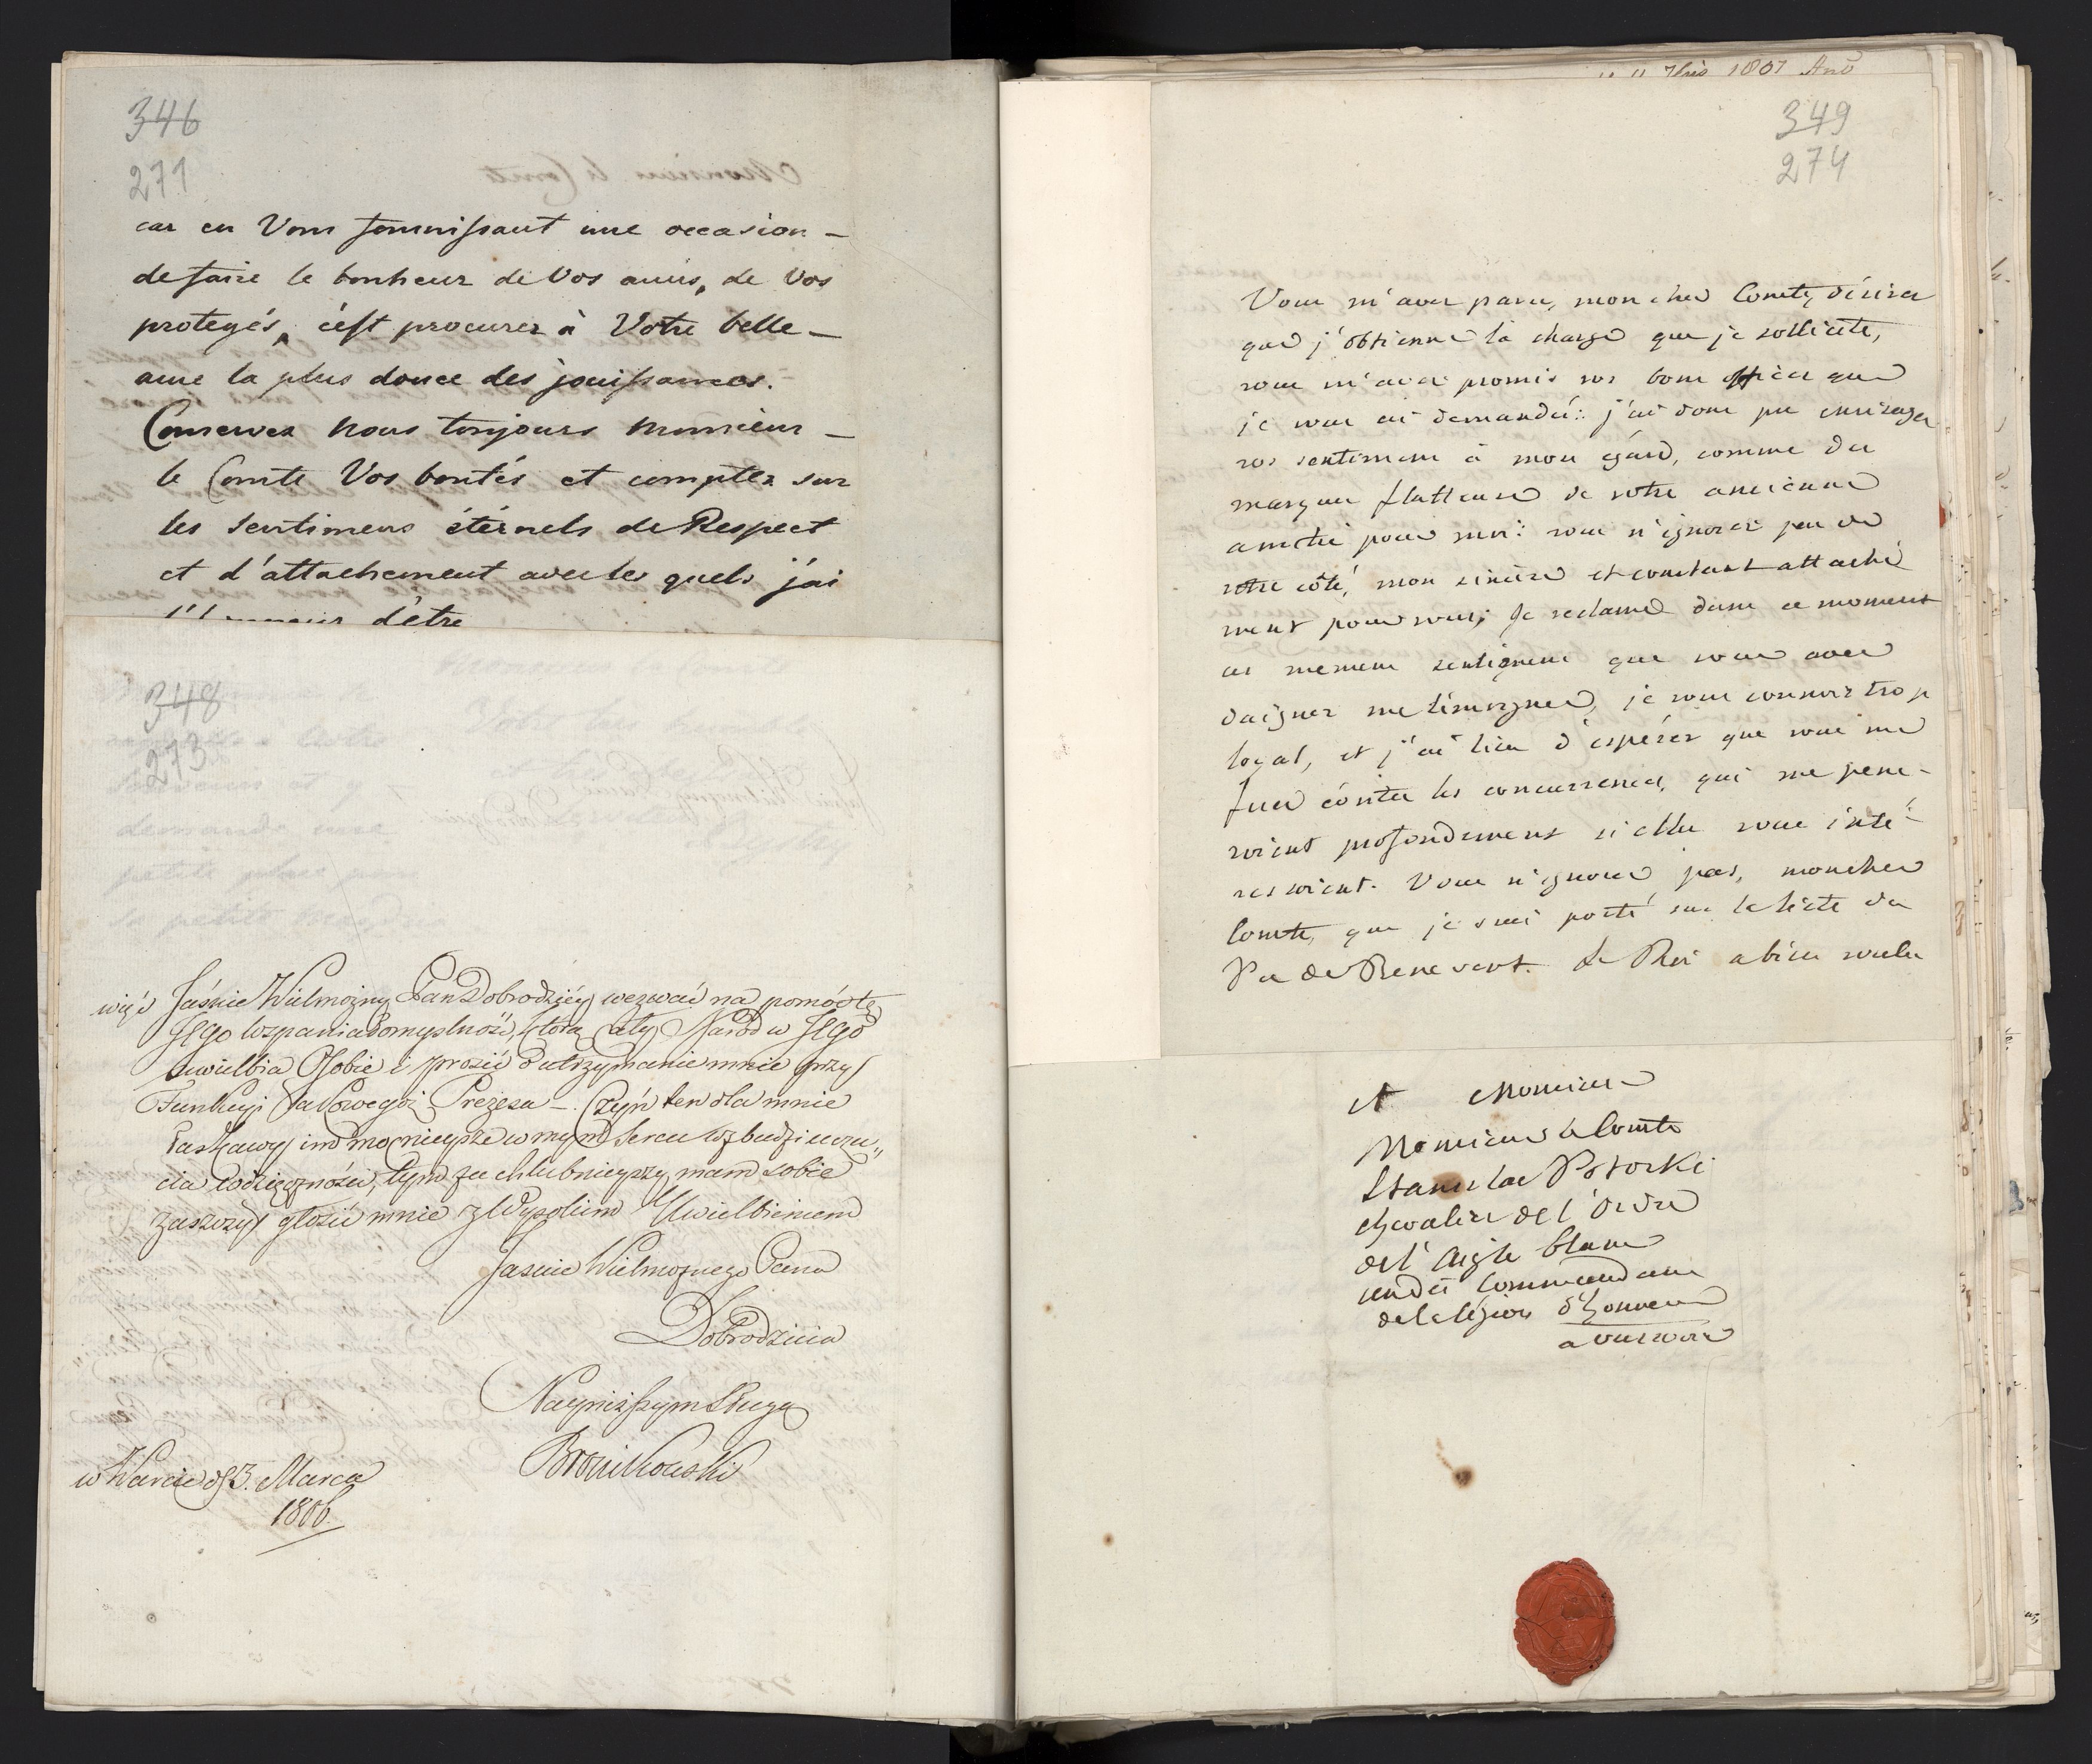 346
271
car en Vous fournissant une occasion –
de faire le bonheur de Vos amis, de Vos
protegés, c'est procurer à Votre belle –
ame la plus douce des jouissances.
Conservez nous toujours Monsieur –
le Comte Vos bontés et comptez sur
les sentimens étérnels de Respect
et d'attachement avec les quels j'ai
d'être
348
273
więc Jaśnie Wielmożny Pan Dobrodziéy wezwać na pomóc tę
JEgo wspaniałomyślność, którą cały Naród w JEgo
uwielbia Osobie i prosić o utrzymanie mnie przy
Funkcyi Prezesa –. Czyń ten dla mnie
łaskawy im mocnieysze w mym sercu wzbudzi uczu„
cia wdzięczności, tym za chlubnieyszy mam sobie
zaszczyt głosić mnie z Wysokim Uwielbieniem
Jasnie Wielmożnego Pana
Dobrodzieia
Nayniższym Sługą
Bronikowski
w Warcie d 3. Marca
1806.
1807
349
274
Vous m'avez paru, mon cher Comte, désirer
que j'obtienne la charge que je sollicite,
vous m'avez promis vos bons offices que
je vous ai demandés: j'ai donc pu envisager
vos sentimens à mon égard, comme des
marques flatteuses de votre ancienne
amitié pour moi: vous n'ignorez pas de
votre côté, mon sincère et constant attaché
ment pour vous; Je reclame dans ce moment
ces memes sentimens que vous avez
daigner me témoigner, je vous connois trop
loyal, et j'ai lieu d'espérer que vous me
ferez éviter les concurrences, qui me pene-
roient profondement si elles vous inté-
ressoient. Vous n'ignorez pas, mon cher
Comte, que je suis porté sur la liste du
Pce de Benevent. Le Roi a bien voulu
A Monsieur
Monsieur le Comte
Stanislas Potocki
chevalier de l'Ordre
de l'Aigle blanc
commandant
de la légion d'honneur
a Varsovie